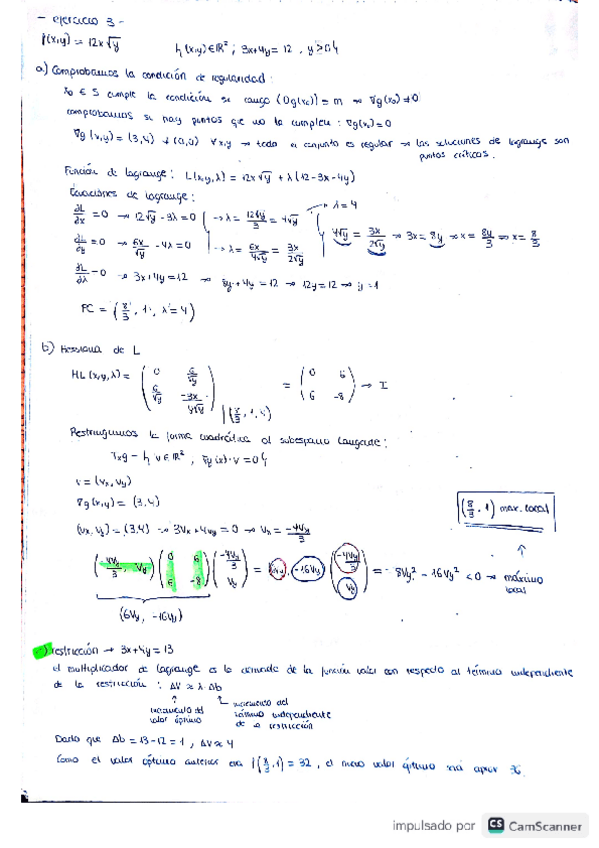 - ejercicio 3 -
f(x,y) = 12x√y    { (x,y) ∈ ℝ² ; 3x+4y = 12 , y > 0 }
a) Comprobamos la condición de regularidad:
x₀ ∈ S cumple la condición si rango (Dg(x₀)) = m → ∇g(x₀) ≠ 0
comprobamos si hay puntos que no la cumplen : ∇g(x₀) = 0
∇g (x,y) = (3,4) ≠ (0,0) ∀x,y → todo el conjunto es regular → las soluciones de lagrange son
puntos críticos.
Función de lagrange: L(x,y,λ) = 12x√y + λ (12-3x-4y)
Ecuaciones de lagrange:
→ λ = 4
∂L/∂x = 0 → 12√y - 3λ = 0 → λ = 12√y/3 = 4√y
4√y = 3x/2√y → 3x = 8y → x = 8y/3 → x = 8/3
∂L/∂y = 0 → 6x/√y - 4λ = 0 → λ = 6x/4√y = 3x/2√y
∂L/∂λ = 0 → 3x+4y = 12 → 8y+4y = 12 → 12y = 12 → y = 1
PC = (8/3, 1, λ = 4)
b) Hessiana de L
HL (x,y,λ) = ( 0 6/√y ; 6/√y -3x/y√y ) |(8/3, 1, 4) = ( 0 6 ; 6 -8 ) → I
Restringimos la forma cuadrática al subespacio tangente:
Txg = { v ∈ ℝ² , ∇g(x)·v = 0 }
v = (vx, vy)
∇g(x,y) = (3,4)
(8/3, 1) max. local
(vx, vy) · (3,4) → 3vx + 4vy = 0 → vx = -4vy/3
(-4vy/3, vy) ( 0 6 ; 6 -8 ) ( -4vy/3 ; vy ) = (6vy, -16vy) ( -4vy/3 ; vy ) = -8vy² - 16vy² < 0 → máximo
local
(6vy, -16vy)
c) restricción → 3x+4y = 13
el multiplicador de lagrange es la derivada de la función valor con respecto al término independiente
de la restricción : ΔV ≈ λ·Δb
incremento del
valor óptimo
incremento del
término independiente
de la restricción
Dado que Δb = 13-12 = 1 , ΔV ≈ 4
Como el valor óptimo anterior era f(8/3, 1) = 32 , el nuevo valor óptimo será aprox 36.
impulsado por CS CamScanner